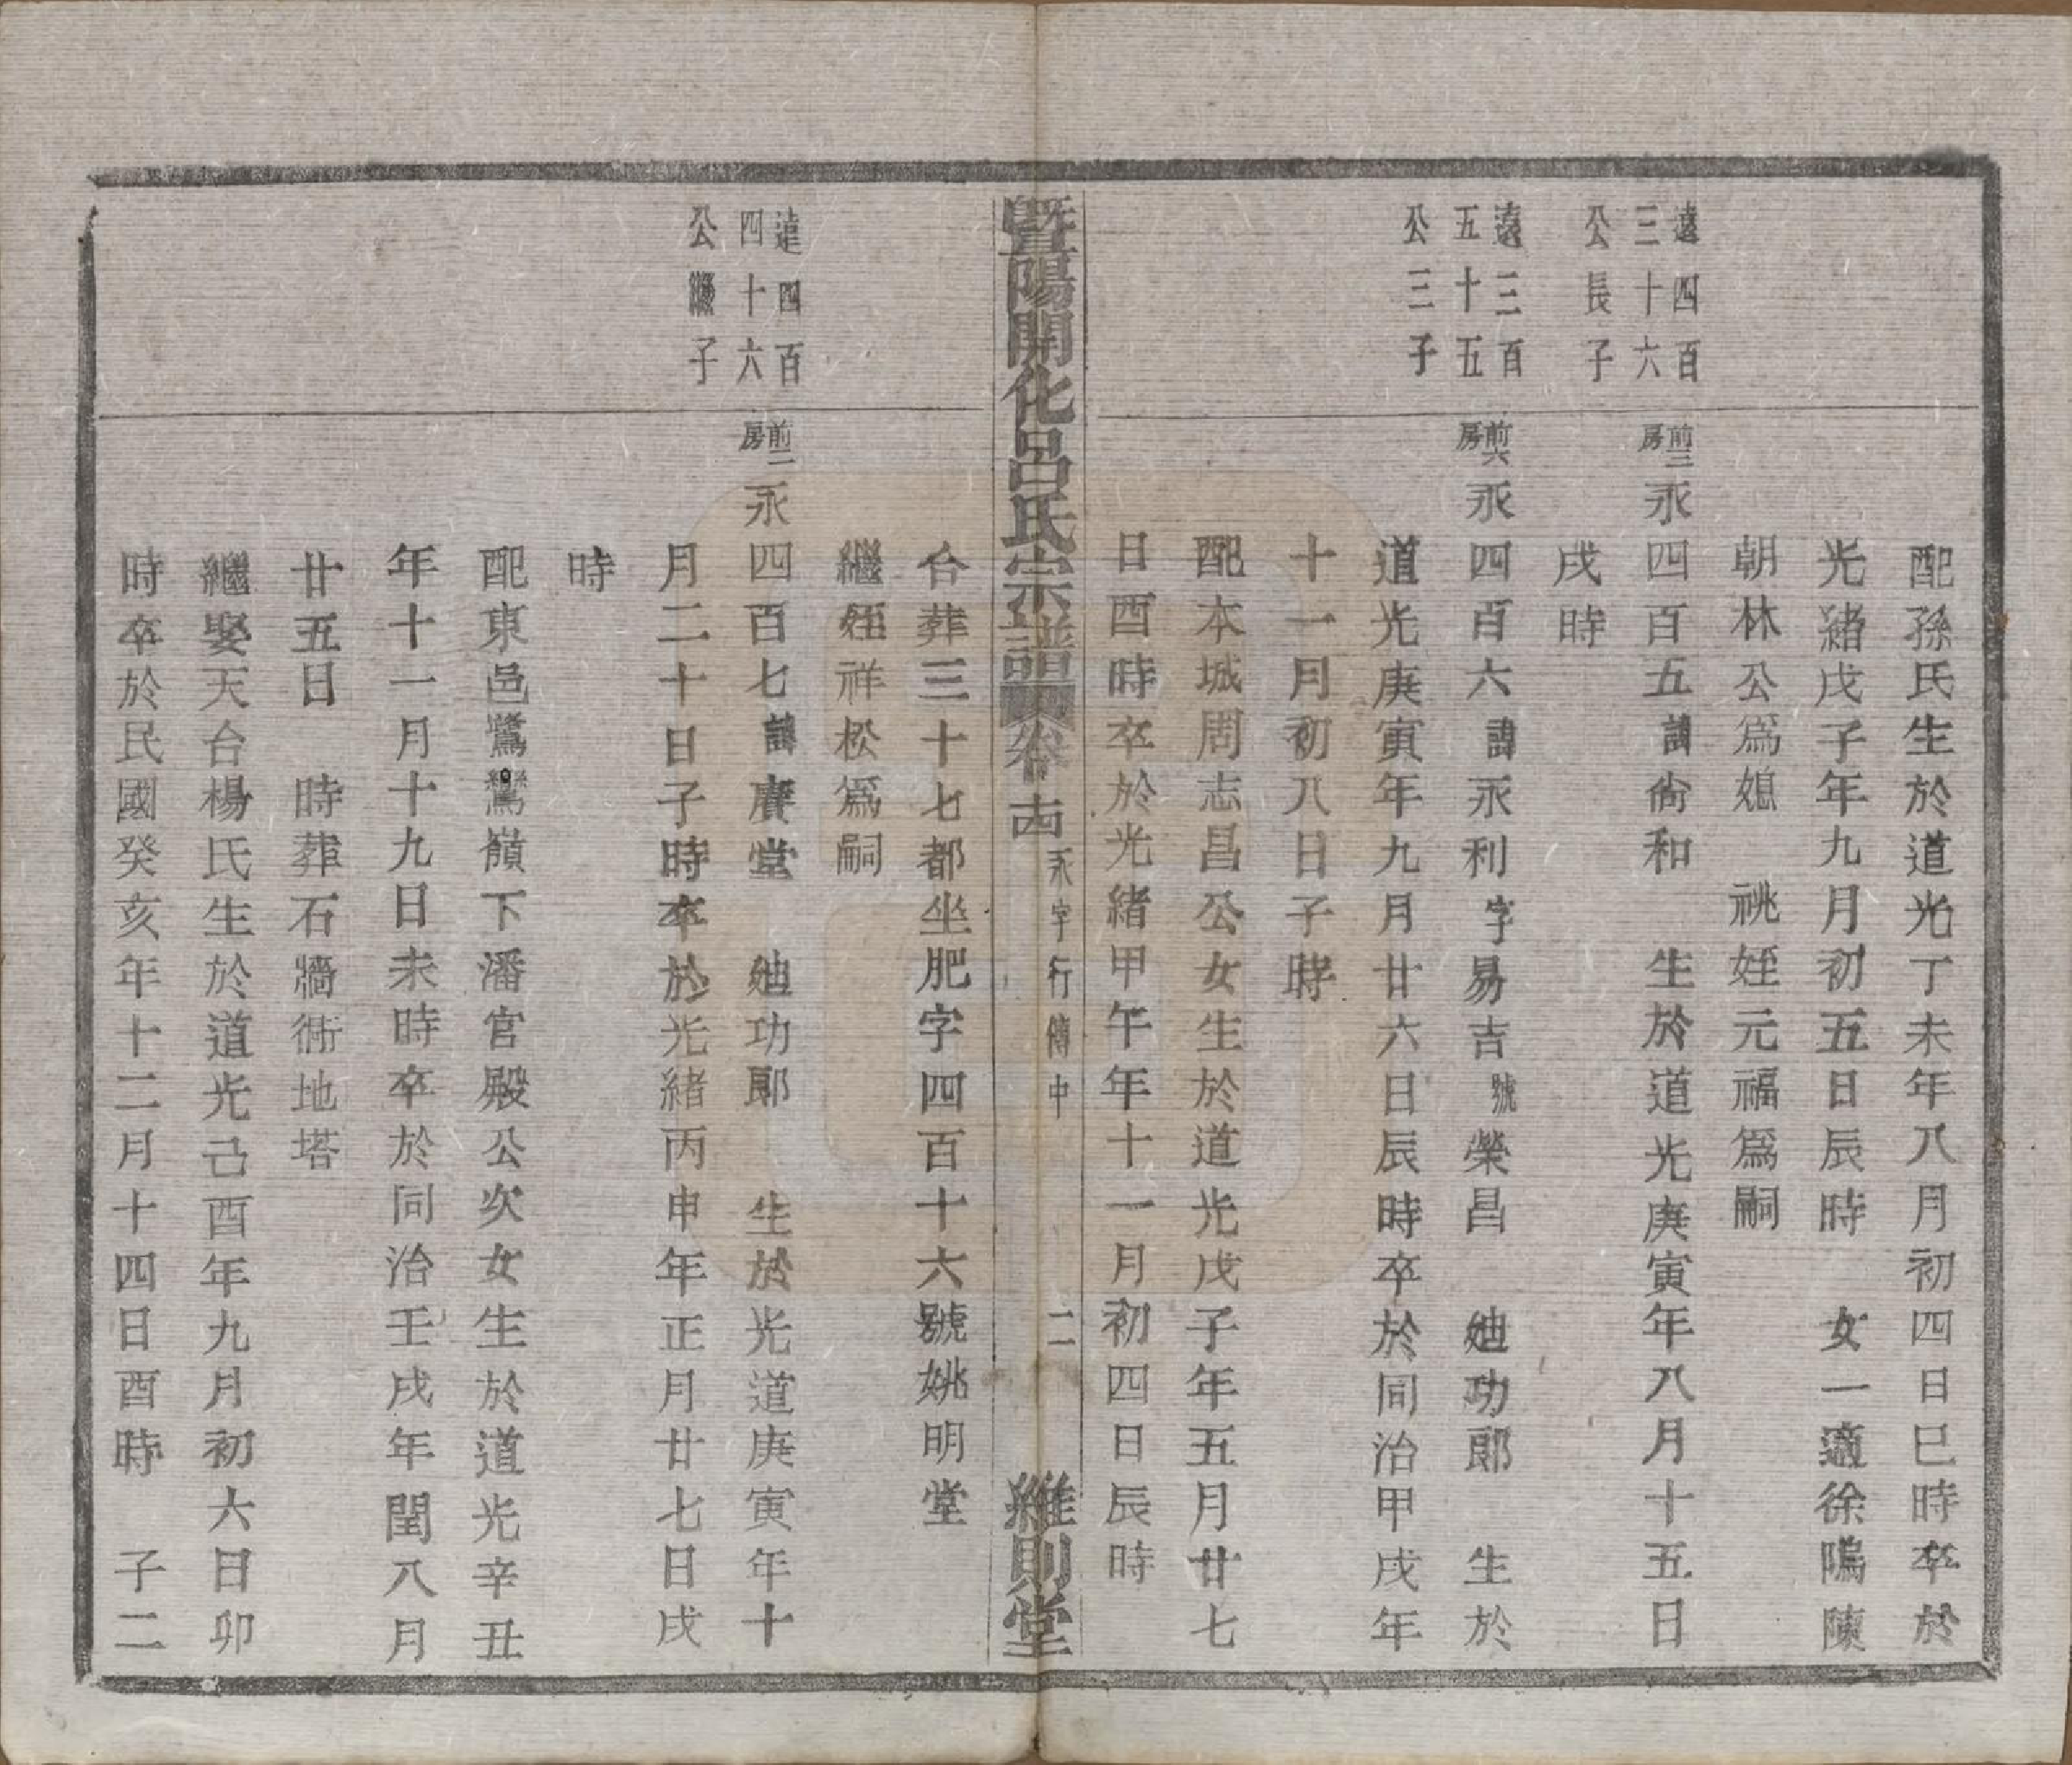 配孫氏生於道光丁未年八月初四日巳時卒於
光緒戊子年九月初五日辰時　女一適徐隝陳
朝林公為媳　祧姪元福為嗣
遠四百三十六公長子
前三房永四百五諱尙和　生於道光庚寅年八月十五日
戌時
遠三百五十五公三子
前六房永四百六諱永利字易吉號榮昌　迪功郎　生於
道光庚寅年九月廿六日辰時卒於同治甲戌年
十一月初八日子時
配本城周志昌公女生於道光戊子年五月廿七
日酉時卒於光緒甲午年十一月初四日辰時
暨陽開化呂氏宗譜 卷十四 永字行傳中　二　維則堂
合葬三十七都坐肥字四百十六號姚明堂
繼姪祥松為嗣
遠四百四十六公繼子
前二房永四百七諱賡堂　迪功郎　生於光道庚寅年十
月二十日子時卒於光緒丙申年正月廿七日戌
時
配東邑鷺鷥嶺下潘官殿公次女生於道光辛丑
年十一月十九日未時卒於同治壬戌年閏八月
廿五日　時葬石牆衕地塔
繼娶天台楊氏生於道光己酉年九月初六日卯
時卒於民國癸亥年十二月十四日酉時　子二